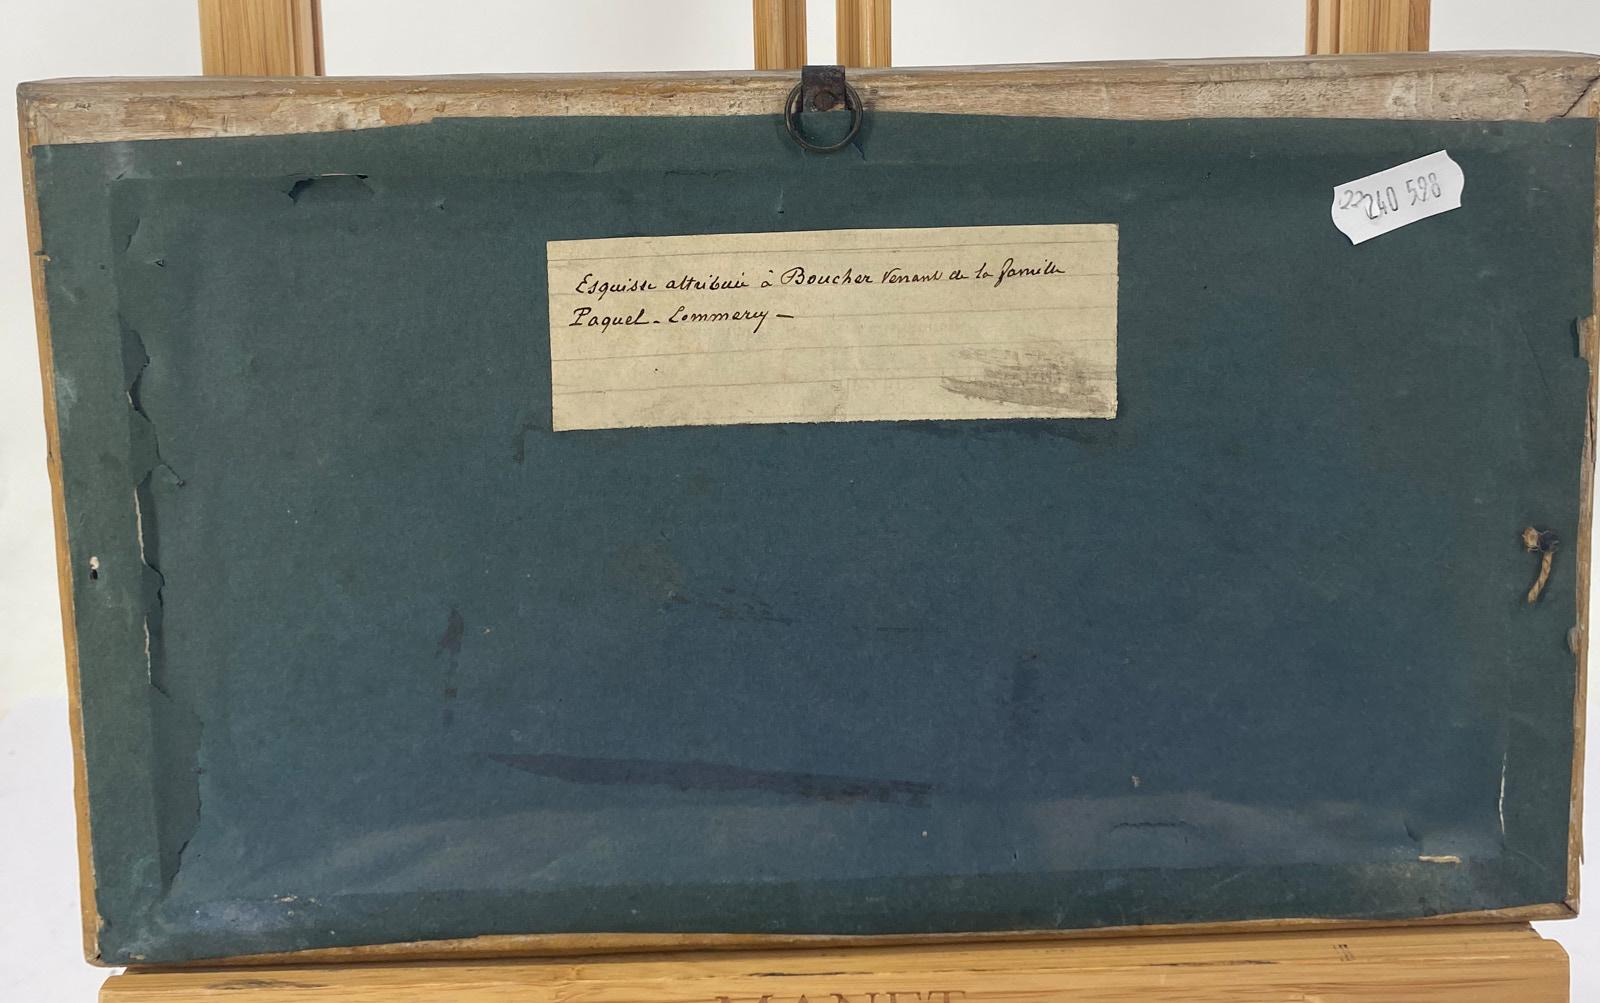 22240 598
Esquisse attribuée à Boucher Venant de la famille
Paquel - Lommery -
MANET